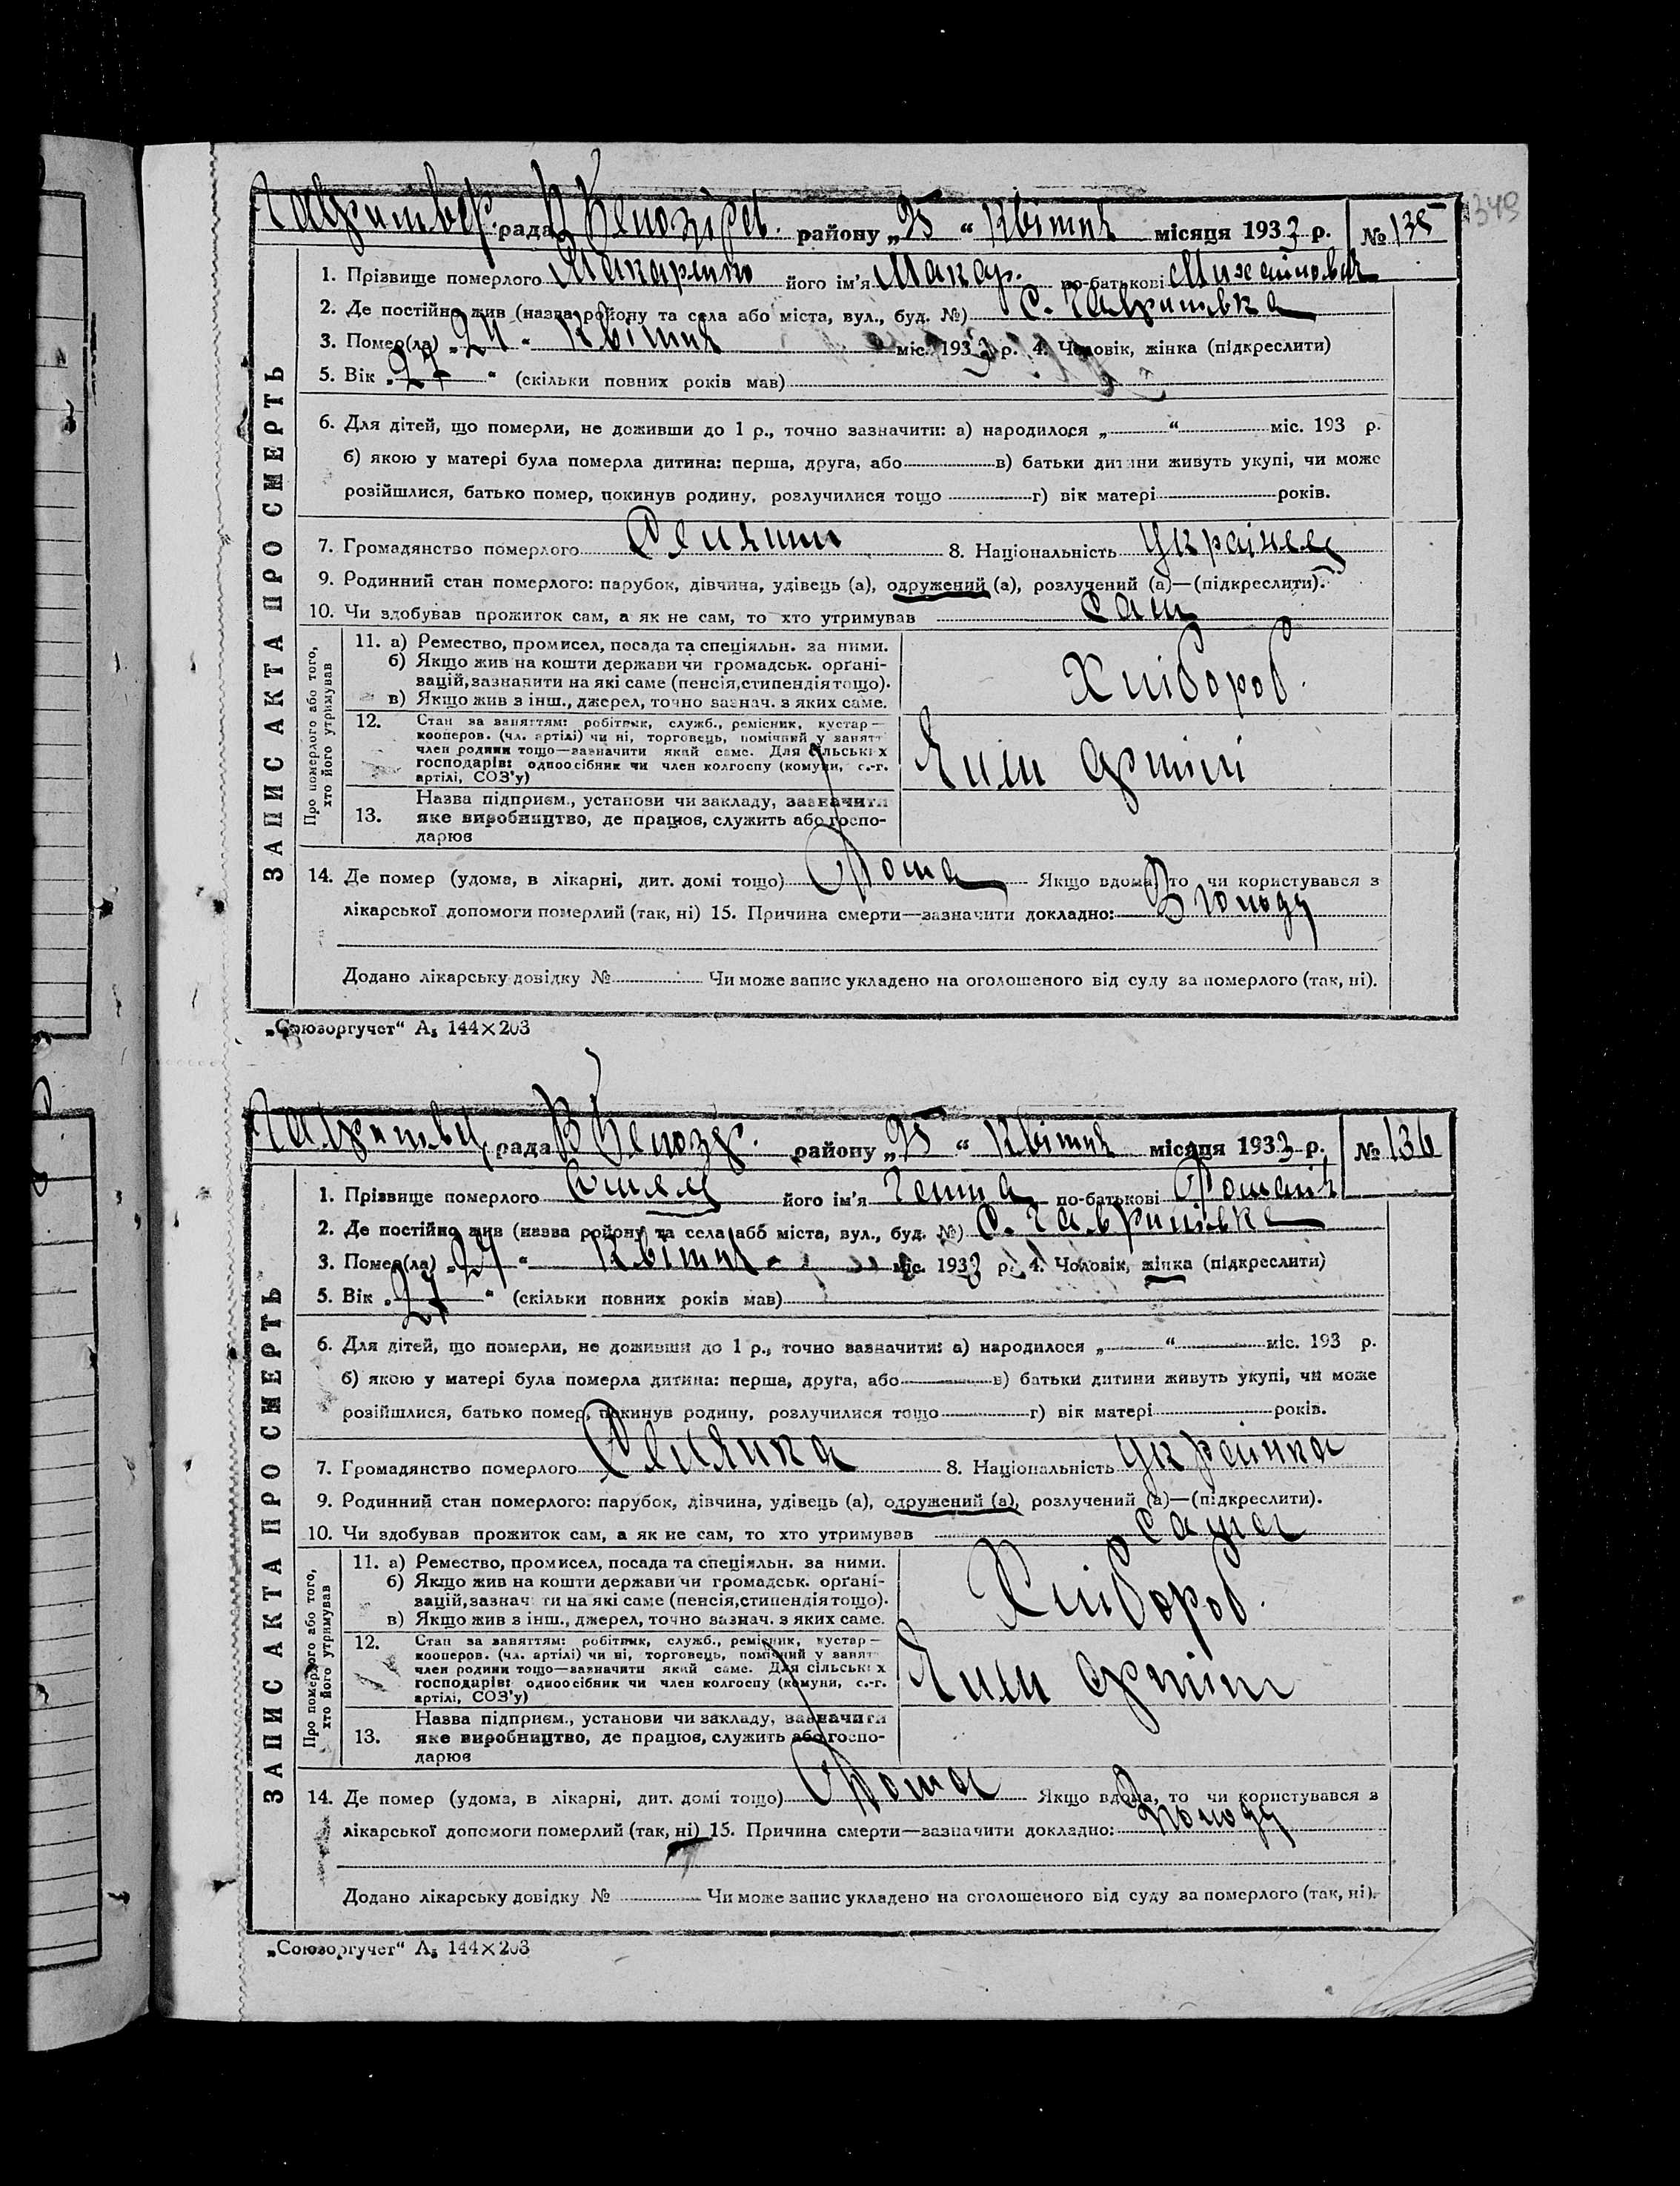 349
рада В Білозірсь. району „25“ Квітня місяця 1933 р. № 135
1. Прізвище померлого Макаренко його ім'я Макар. по-батькові Михайлович
2. Де постійно жив (назва району та села або міста, вул., буд. №) С. Гаврилівка
3. Помер(ла) „24“ Квітня міс. 1933 р. 4. Чоловік, жінка (підкреслити)
5. Вік „27“ (скільки повних років мав)
6. Для дітей, що померли, не доживши до 1 р., точно зазначити: а) народилося „ “ міс. 193 р.
б) якою у матері була померла дитина: перша, друга, або в) батьки дитини живуть укупі, чи може
розійшлися, батько помер, покинув родину, розлучилися тощо г) вік матері років.
7. Громадянство померлого Селянин 8. Національність Українець
9. Родинний стан померлого: парубок, дівчина, удівець (а), одружений (а), розлучений (а)—(підкреслити).
10. Чи здобував прожиток сам, а як не сам, то хто утримував сам
ЗАПИС АКТА ПРО СМЕРТЬ
Про померлого або того, хто його утримував
11. а) Ремество, промисел, посада та спеціяльн. за ними.
б) Якщо жив на кошти держави чи громадськ. органі-
зацій, зазначити на які саме (пенсія, стипендія тощо).
в) Якщо жив з інш., джерел, точно зазнач. з яких саме.
Хлібороб.
12. Стан за заняттям: робітник, служб., ремісник, кустар—
кооперов. (чл. артілі) чи ні, торговець, помічний у занят
член родини тощо—зазначити який саме. Для сільських
господарів: одноосібник чи член колгоспу (комуни, с.-г.
артілі, СОЗ'у)
Член артілі
13. Назва підприєм., установи чи закладу, зазначити
яке виробництво, де працюв, служить або госпо-
дарюв
14. Де помер (удома, в лікарні, дит. домі тощо) Дома Якщо вдома, то чи користувався з
лікарської допомоги померлий (так, ні) 15. Причина смерти—зазначити докладно: З голоду
Додано лікарську довідку № Чи може запис укладено на оголошеного від суду за померлого (так, ні).
„Союзоргучет“ А₅ 144×203
рада В Білозер. району „25“ Квітня місяця 1933 р. № 136
1. Прізвище померлого його ім'я Ганна по-батькові
2. Де постійно жив (назва району та села або міста, вул., буд. №) С. Гаврилівка
3. Помер(ла) „24“ Квітня міс. 1933 р. 4. Чоловік, жінка (підкреслити)
5. Вік „27“ (скільки повних років мав)
6. Для дітей, що померли, не доживши до 1 р., точно зазначити: а) народилося „ “ міс. 193 р.
б) якою у матері була померла дитина: перша, друга, або в) батьки дитини живуть укупі, чи може
розійшлися, батько помер, покинув родину, розлучилися тощо г) вік матері років.
7. Громадянство померлого Селянка 8. Національність Українка
9. Родинний стан померлого: парубок, дівчина, удівець (а), одружений (а), розлучений (а)—(підкреслити).
10. Чи здобував прожиток сам, а як не сам, то хто утримував сама
ЗАПИС АКТА ПРО СМЕРТЬ
Про померлого або того, хто його утримував
11. а) Ремество, промисел, посада та спеціяльн. за ними.
б) Якщо жив на кошти держави чи громадськ. органі-
зацій, зазначити на які саме (пенсія, стипендія тощо).
в) Якщо жив з інш., джерел, точно зазнач. з яких саме.
Хлібороб.
12. Стан за заняттям: робітник, служб., ремісник, кустар—
кооперов. (чл. артілі) чи ні, торговець, помічний у занят
член родини тощо—зазначити який саме. Для сільських
господарів: одноосібник чи член колгоспу (комуни, с.-г.
артілі, СОЗ'у)
Член артіли
13. Назва підприєм., установи чи закладу, зазначити
яке виробництво, де працюв, служить або госпо-
дарюв
14. Де помер (удома, в лікарні, дит. домі тощо) Дома Якщо вдома, то чи користувався з
лікарської допомоги померлий (так, ні) 15. Причина смерти—зазначити докладно: З голоду
Додано лікарську довідку № Чи може запис укладено на оголошеного від суду за померлого (так, ні).
„Союзоргучет“ А₅ 144×203